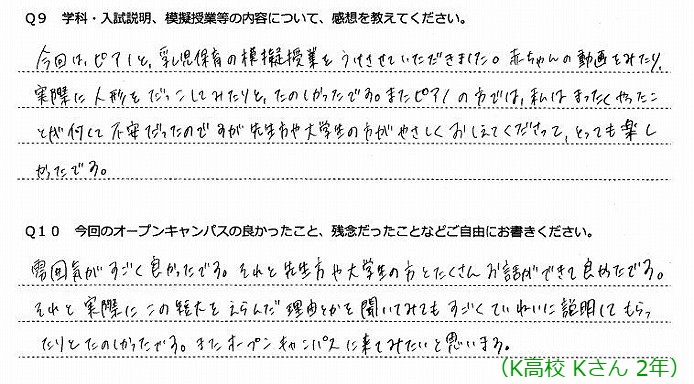 Q9 学科・入試説明、模擬授業等の内容について、感想を教えてください。
今回は、ピアノと、乳児保育の模擬授業をうけさせていただきました。赤ちゃんの動画をみたり、
実際に人形をだっこしてみたりと、たのしかったです。またピアノの方では、私はまったくやったこ
とが何くて不安だったのですが先生方や大学生の方がやさしくおしえてくださって、とっても楽し
かったです。
Q10 今回のオープンキャンパスの良かったこと、残念だったことなどご自由にお書きください。
雰回気がすごく良かったです。それと先生方や大学生の方とたくさんお話ができて良かったです。
それと実際にこの短大をえらんだ理由とかを聞いてみてもすごくていねいに説明してもらっ
たりとたのしかったです。またオープンキャンパスに来てみたいと思います。
(K高校 Kさん 2年)